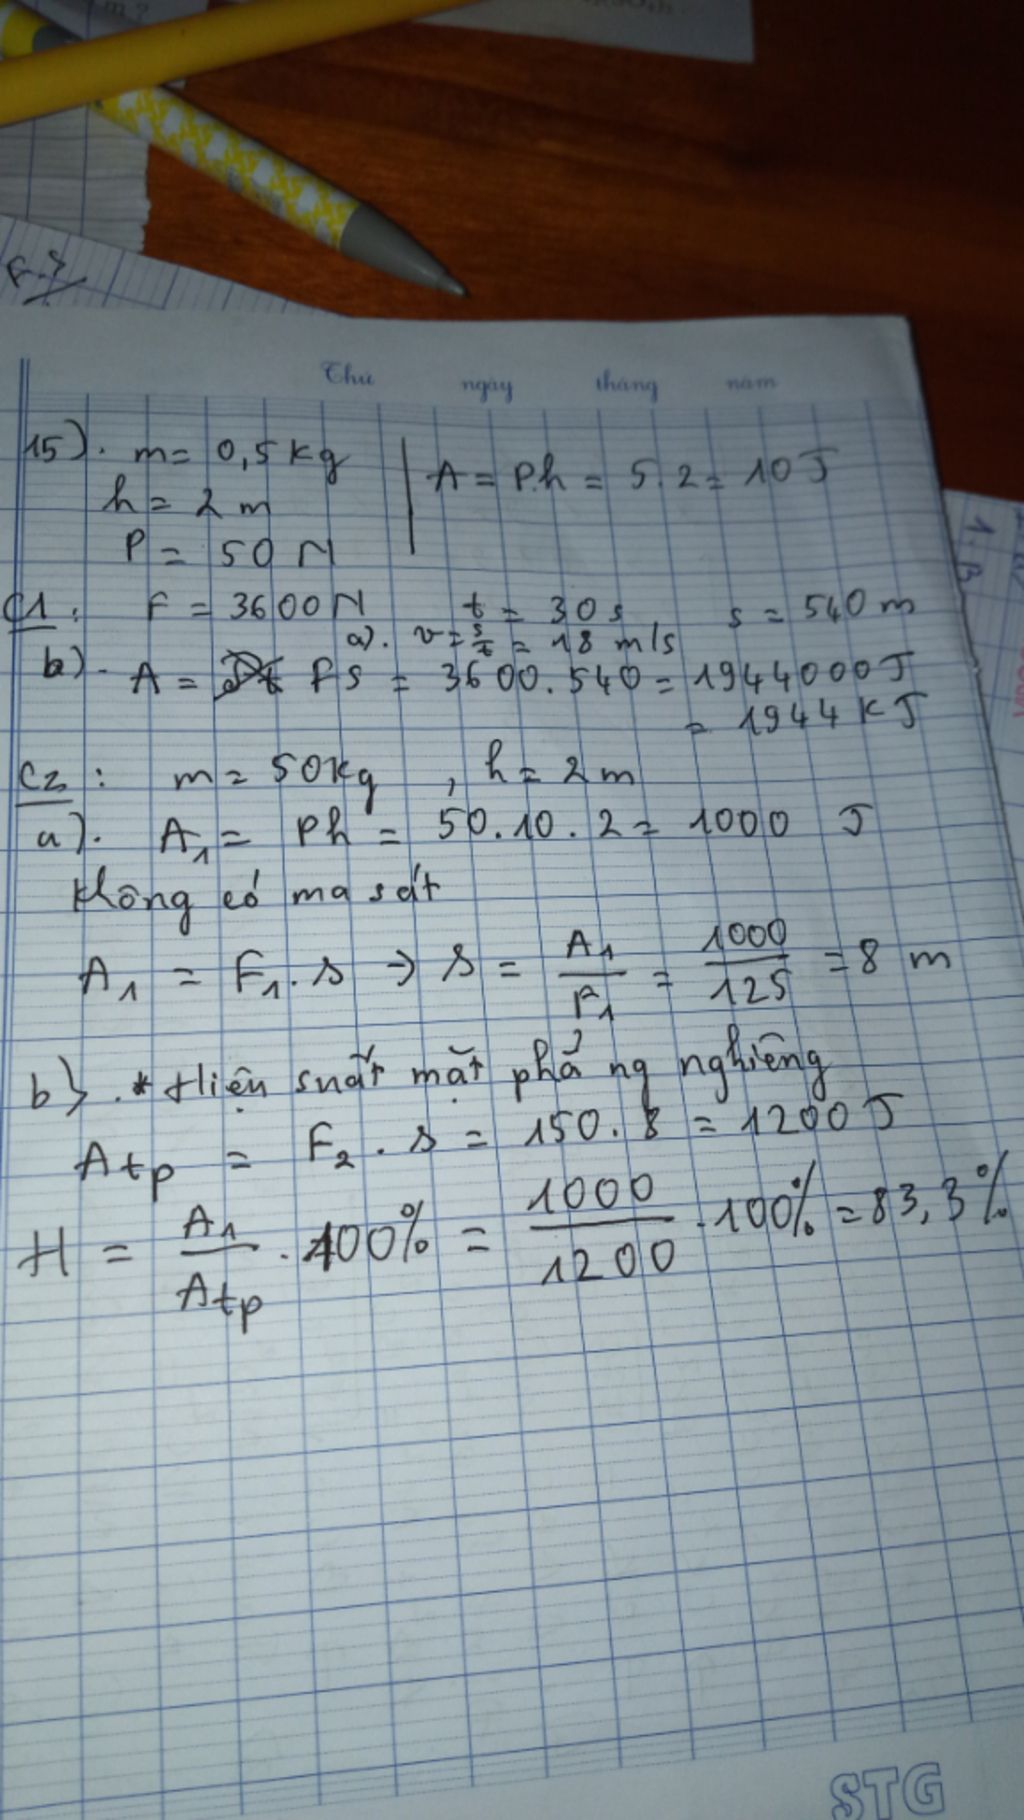 m ?
F.s
Thứ ngày tháng năm
15). m = 0,5 kg
h = 2 m
P = 50 N
A = P.h = 5.2 = 10 J
C1: F = 3600 N t = 30 s s = 540 m
a). v = s/t = 18 m/s
b). A = Fs = 3600.540 = 1944000 J
= 1944 KJ
C2: m = 50kg , h = 2 m
a). A₁ = Ph = 50.10.2 = 1000 J
Không có ma sát
A₁ = F₁.s → s = A₁/F₁ = 1000/125 = 8 m
b). * Hiệu suất mặt phẳng nghiêng
Atp = F₂.s = 150.8 = 1200 J
H = A₁/Atp . 100% = 1000/1200 . 100% = 83,3%
1. B
STG